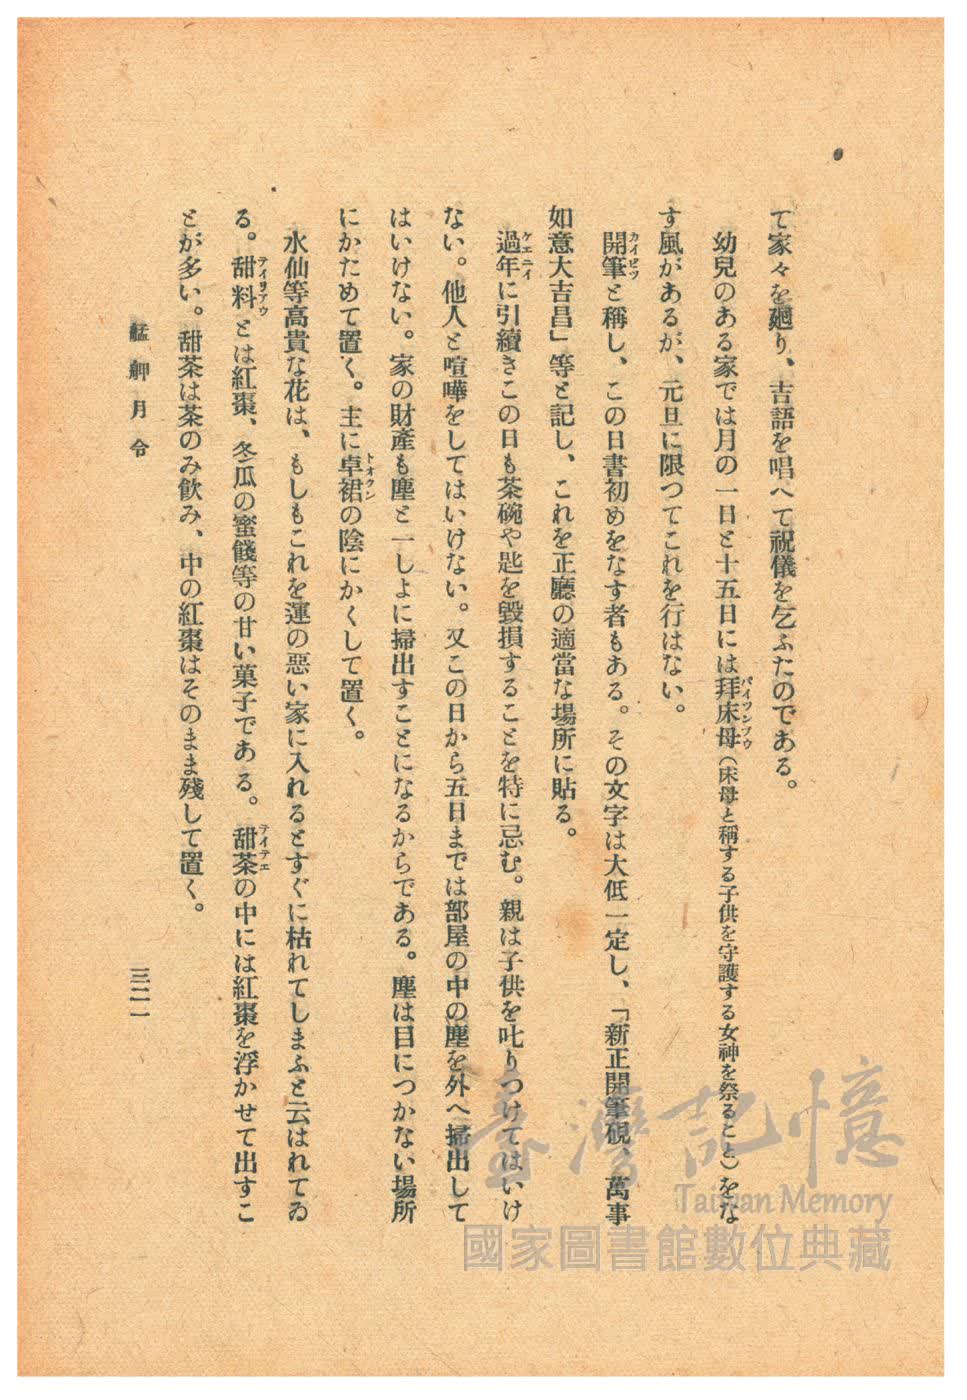 て家々を廻り、吉語を唱へて祝儀を乞ふたのである。
幼兒のある家では月の一日と十五日には拜床母（床母と稱する子供を守護する女神を祭ること）をな
パイツンブウ
す風があるが、元旦に限つてこれを行はない。
開筆と稱し、この日書初めをなす者もある。その文字は大低一定し、「新正開筆硯、萬事
カイピツ
如意大吉昌」等と記し、これを正廳の適當な場所に貼る。
過年に引續きこの日も茶碗や匙を毀損することを特に忌む。親は子供を叱りつけてはいけ
ケエニイ
ない。他人と喧嘩をしてはいけない。又この日から五日までは部屋の中の塵を外へ掃出して
はいけない。家の財產も塵と一しよに掃出すことになるからである。塵は目につかない場所
にかためて置く。主に卓裙の陰にかくして置く。
トオクン
水仙等高貴な花は、もしもこれを運の惡い家に入れるとすぐに枯れてしまふと云はれてゐ
る。甜料とは紅棗、冬瓜の蜜餞等の甘い菓子である。甜茶の中には紅棗を浮かせて出すこ
テイリアウ
テイテエ
とが多い。甜茶は茶のみ飮み、中の紅棗はそのまま殘して置く。
艋舺月令
三二一
臺灣記憶
Taiwan Memory
國家圖書館數位典藏